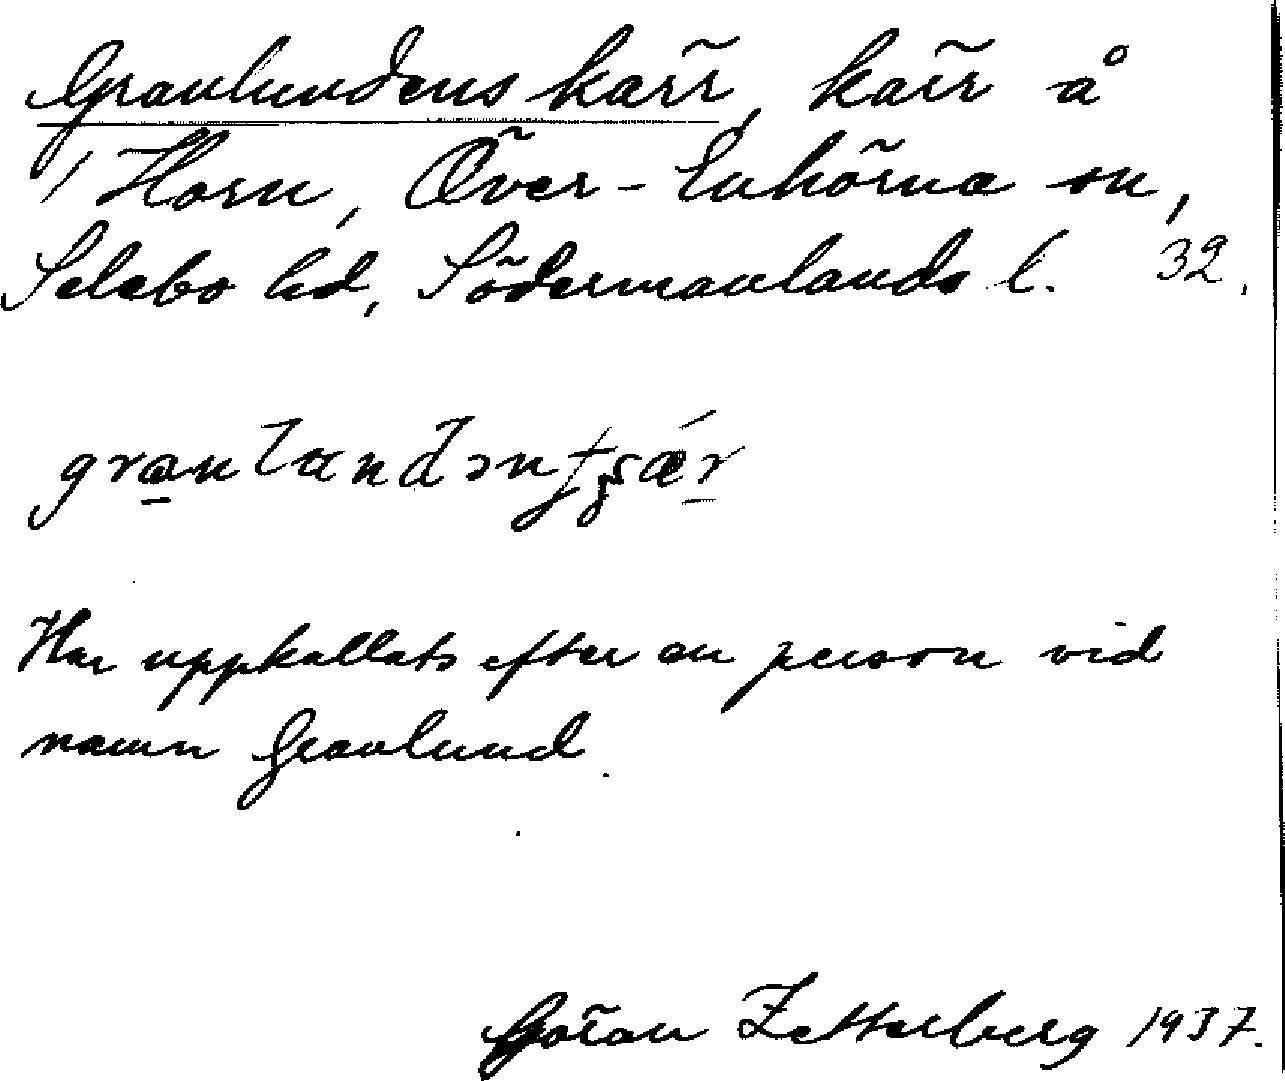 Granlundens kärr, kärr å
Horn, Över-Enhörna sn,
Selebo hd, Södermanlands l. 32.
Har uppkallats efter en person vid
namn Granlund.
Göran Zetterberg 1937.